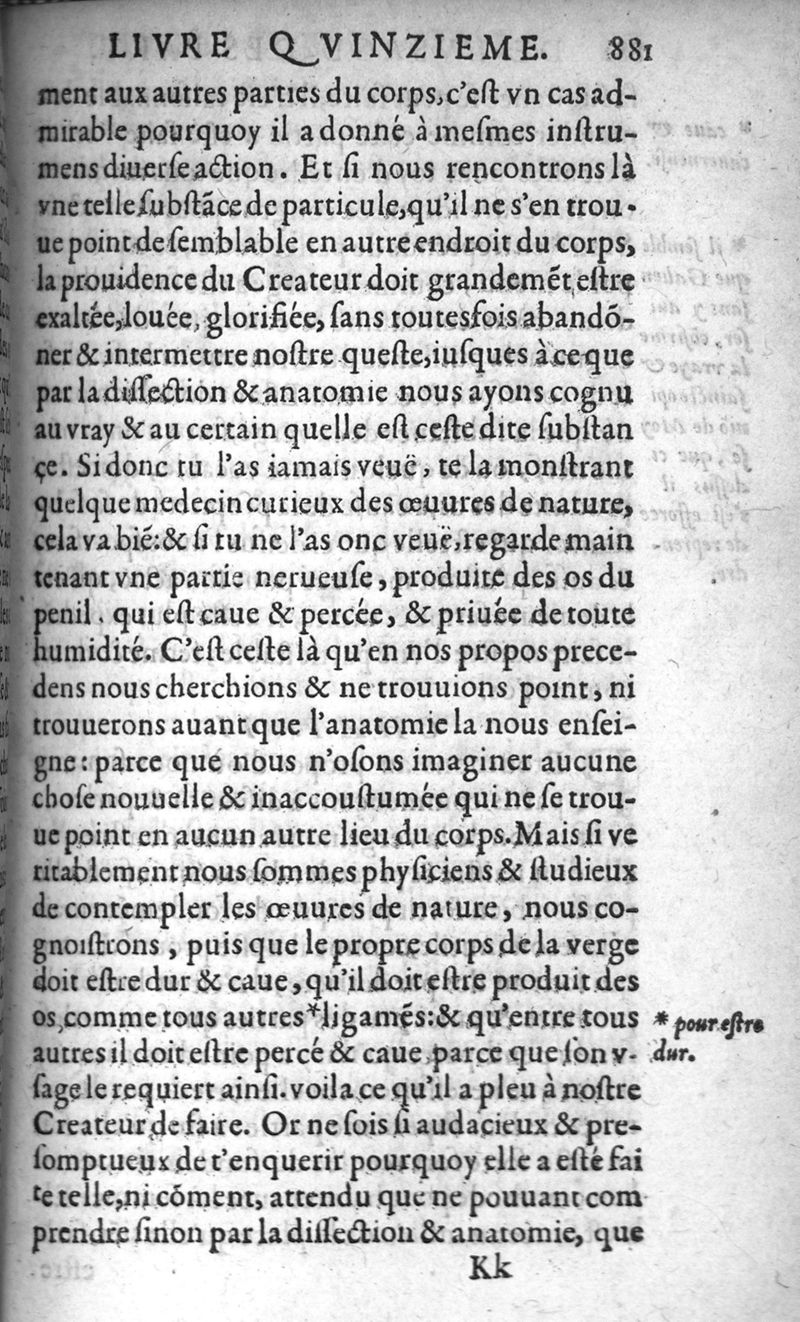 LIVRE QVINZIEME. 881
ment aux autres parties du corps, c'eſt vn cas ad-
mirable pourquoy il a donné à meſmes inſtru-
mens diuerſe action. Et ſi nous rencontrons là
vne telle ſubſtãce de particule, qu'il ne s'en trou-
ue point de ſemblable en autre endroit du corps,
la prouidence du Createur doit grandemẽt eſtre
exaltée, louée, glorifiée, ſans toutesfois abandõ-
ner & intermettre noſtre queſte, iuſques à ce que
par la diſſection & anatomie nous ayons cognu
au vray & au certain quelle eſt ceſte dite ſubſtan
çe. Si donc tu l'as iamais veuë, te la monſtrant
quelque medecin curieux des œuures de nature,
cela va biẽ: & ſi tu ne l'as onc veuë, regarde main
tenant vne partie nerueuſe, produite des os du
penil. qui eſt caue & percée, & priuée de toute
humidité. C'eſt ceſte là qu'en nos propos prece-
dens nous cherchions & ne trouuions point, ni
trouuerons auant que l'anatomie la nous enſei-
gne: parce que nous n'oſons imaginer aucune
choſe nouuelle & inaccouſtumée qui ne ſe trou-
ue point en aucun autre lieu du corps. Mais ſi ve
ritablement nous ſommes phyſiciens & ſtudieux
de contempler les œuures de nature, nous co-
gnoiſtrons, puis que le propre corps de la verge
doit eſtre dur & caue, qu'il doit eſtre produit des
os, comme tous autres *ligamẽs: & qu'entre tous
* pour eſtre
autres il doit eſtre percé & caue parce que ſon v-
dur.
ſage le requiert ainſi. voila ce qu'il a pleu à noſtre
Createur de faire. Or ne ſois ſi audacieux & pre-
ſomptueux de t'enquerir pourquoy elle a eſté fai
te telle, ni cõment, attendu que ne pouuant com
prendre ſinon par la diſſection & anatomie, que
Kk